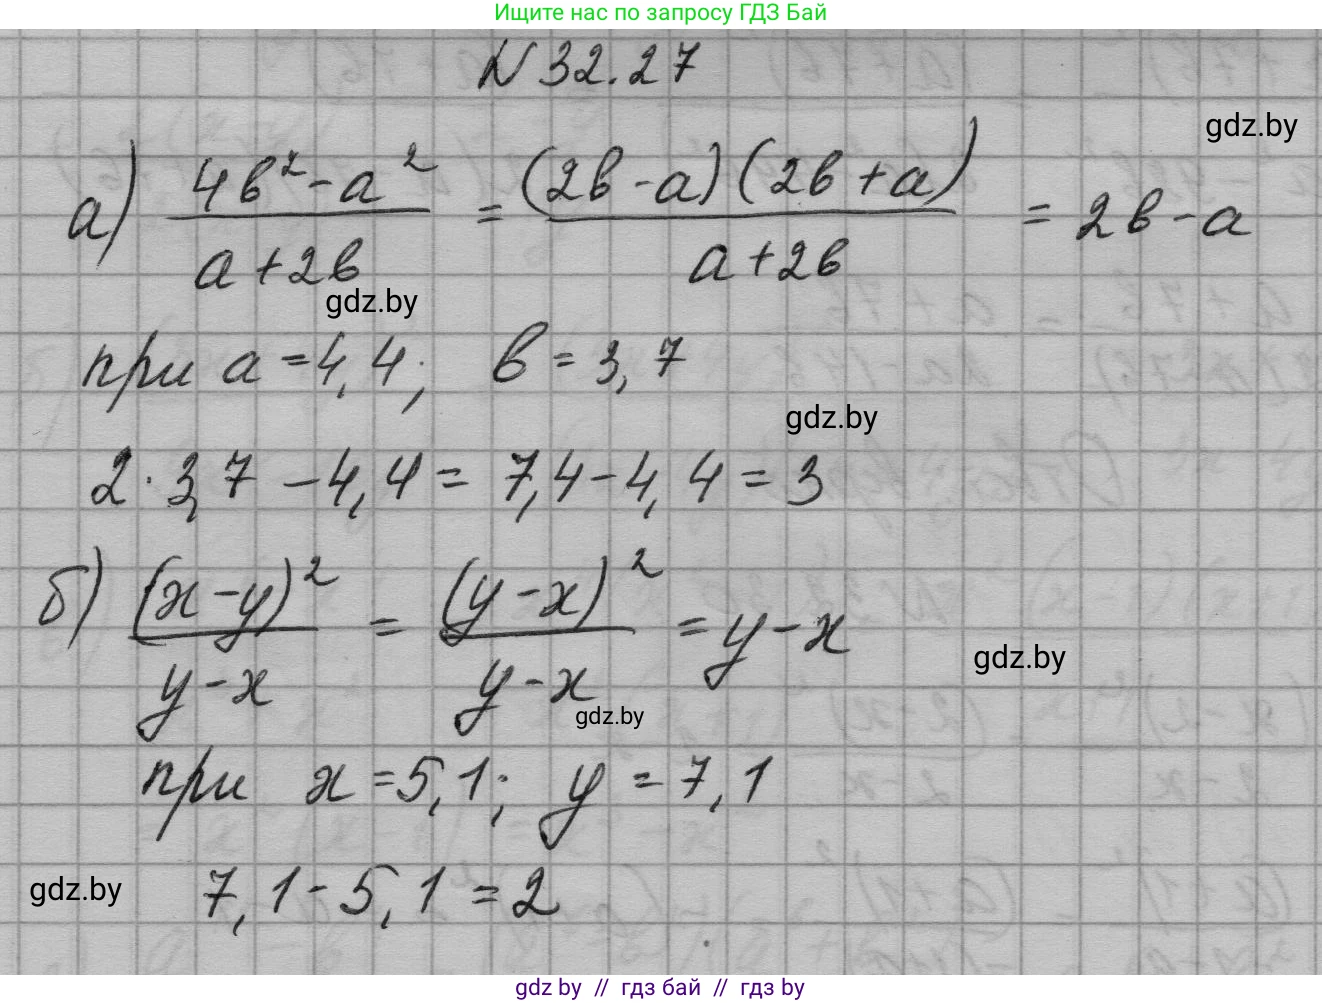 Ищите нас по запросу ГДЗ Бай
N 32.27
gdz.by
а) (4в² - а²)/(а + 2в) = ((2в - а)(2в + а))/(а + 2в) = 2в - а
gdz.by
при а = 4,4; в = 3,7
gdz.by
2 · 3,7 - 4,4 = 7,4 - 4,4 = 3
б) (x - y)²/(y - x) = (y - x)²/(y - x) = y - x
gdz.by
gdz.by
при x = 5,1; y = 7,1
gdz.by
7,1 - 5,1 = 2
gdz by // гдз бай // гдз by